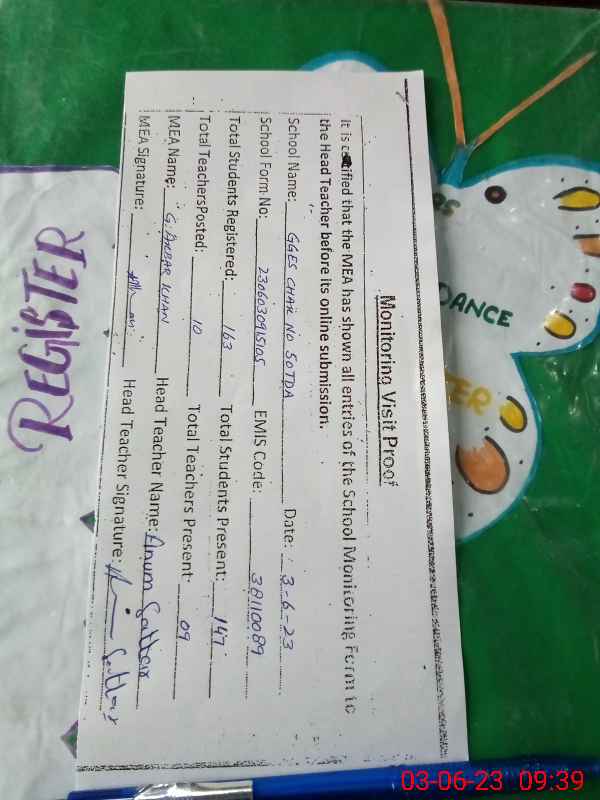 Monitoring Visit Proof
It is certified that the MEA has shown all entries of the School Monitoring Form to
the Head Teacher before its online submission.
School Name: GGES CHAK NO 50TDA Date: 3-6-23
School Form No: 2306030915105 EMIS Code: 38110089
Total Students Registered: 163 Total Students Present: 147
Total TeachersPosted: 10 Total Teachers Present: 09
MEA Name: G. AKBAR KHAN Head Teacher Name: Anum Sattar
MEA Signature: Head Teacher Signature: Sattar
REGISTER
DANCE
03-06-23 09:39